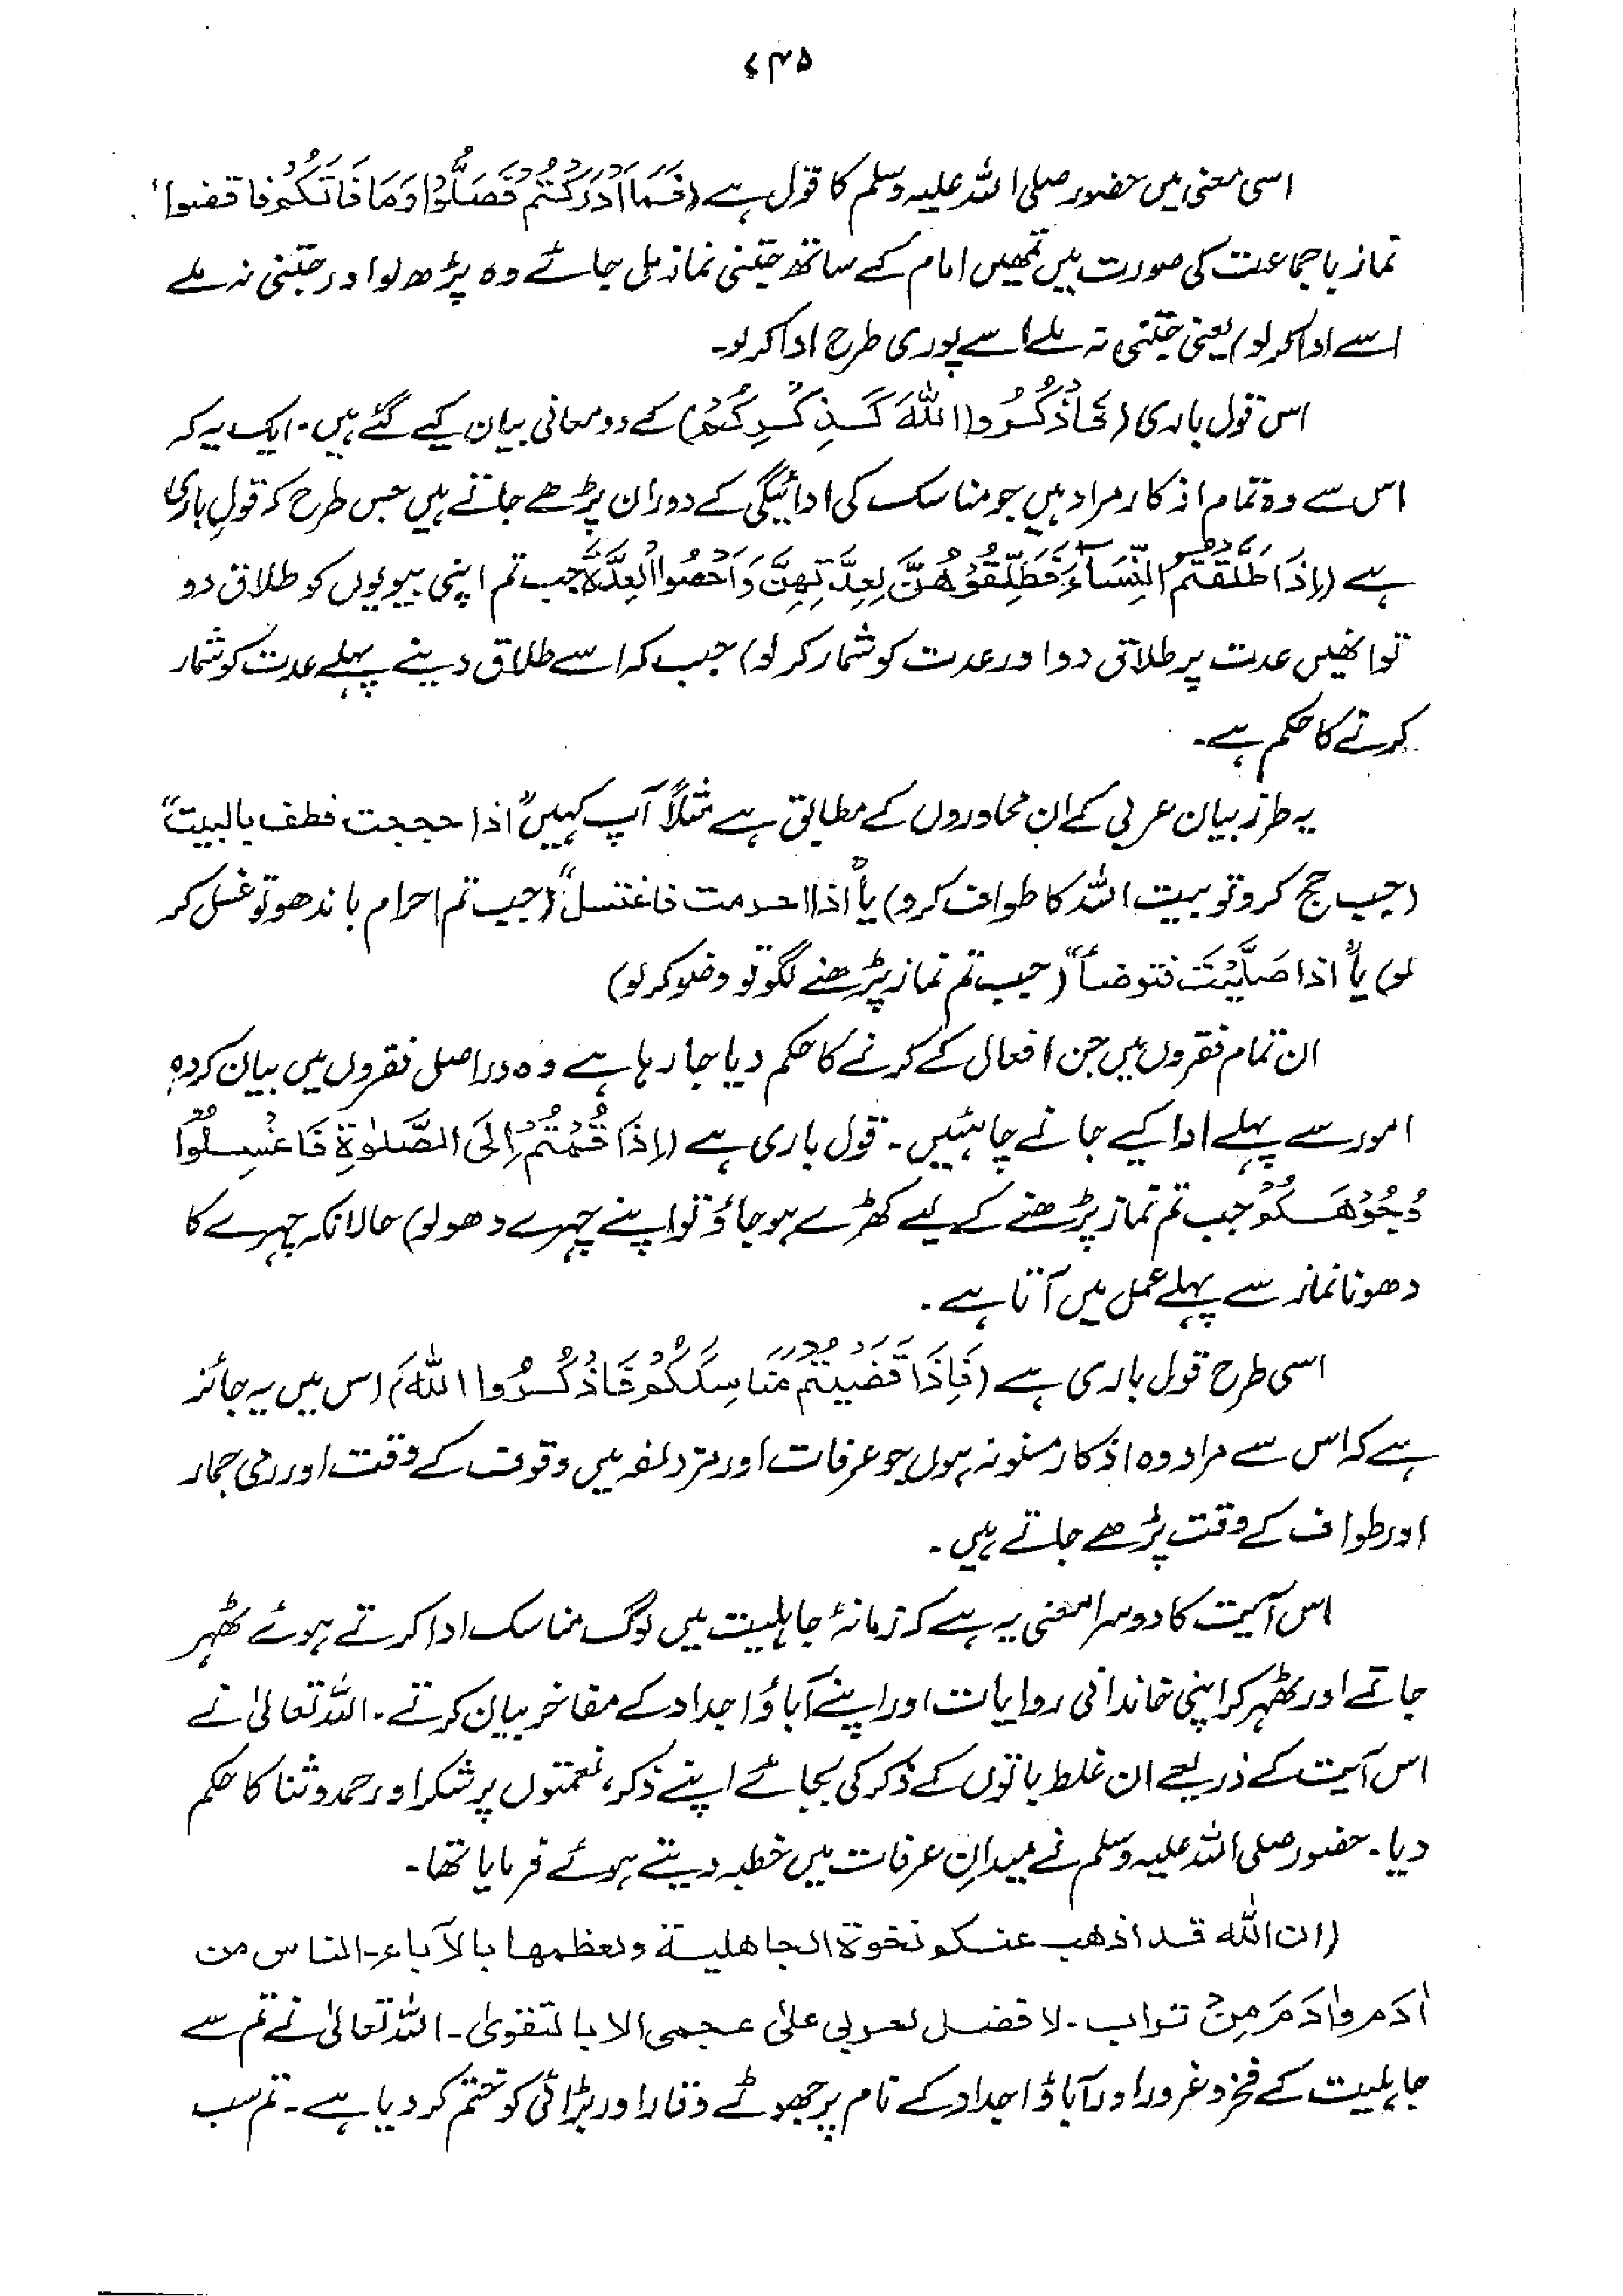 ۷۴۵
اسی معنی میں حضور صلی اللہ علیہ وسلم کا قول ہے (فَمَا اَدْرَكْتُمْ فَصَلُّوْا وَمَا فَاتَكُمْ فاقضوا'
نماز باجماعت کی صورت میں تمھیں امام کے ساتھ جتنی نماز مل جائے وہ پڑھ لو اور جتنی نہ ملے
اسے ادا کر لو) یعنی جتنی نہ ملے اسے پوری طرح ادا کر لو۔
اس قول باری (فَاذْكُرُوا اللهَ كَذِكْرِكُمْ) کے دو معانی بیان کیے گئے ہیں۔ ایک یہ کہ
اس سے وہ تمام اذکار مراد ہیں جو مناسک کی ادائیگی کے دوران پڑھے جاتے ہیں جس طرح کہ قولِ باری
ہے (اِذَا طَلَّقْتُمُ النِّسَآءَ فَطَلِّقُوْهُنَّ لِعِدَّتِهِنَّ وَاَحْصُوا الْعِدَّةَ جب تم اپنی بیویوں کو طلاق دو
تو انھیں عدت پر طلاق دو اور عدت کو شمار کر لو) جب کہ اسے طلاق دینے پہلے عدت کو شمار
کرنے کا حکم ہے۔
یہ طرز بیان عربی کے ان محاوروں کے مطابق ہے مثلاً آپ کہیں "اذا حججت فطف بالبيت"
(جب حج کرو تو بیت اللہ کا طواف کرو) یا "اذا احرمت فاغتسل" (جب تم احرام باندھو تو غسل کر
لو) یا "اذا صَلَّيْتَ فتوضأ" (جب تم نماز پڑھنے لگو تو وضو کر لو)
ان تمام فقروں میں جن افعال کے کرنے کا حکم دیا جا رہا ہے وہ دراصل فقروں میں بیان کردہ
امور سے پہلے ادا کیے جانے چاہئیں۔ قول باری ہے (اِذَا قُمْتُمْ اِلَى الصَّلٰوةِ فَاغْسِلُوْا
وُجُوْهَكُمْ جب تم نماز پڑھنے کے لیے کھڑے ہو جاؤ تو اپنے چہرے دھو لو) حالانکہ چہرے کا
دھونا نماز سے پہلے عمل میں آتا ہے۔
اسی طرح قول باری ہے (فَاِذَا قَضَيْتُمْ مَّنَاسِكَكُمْ فَاذْكُرُوا اللهَ) اس میں یہ جائز
ہے کہ اس سے مراد وہ اذکار مسنونہ ہوں جو عرفات اور مزدلفہ میں وقوف کے وقت اور رمی جمار
اور طواف کے وقت پڑھے جاتے ہیں۔
اس آیت کا دوسرا معنی یہ ہے کہ زمانۂ جاہلیت میں لوگ مناسک ادا کرتے ہوئے ٹھہر
جاتے اور ٹھہر کر اپنی خاندانی روایات اور اپنے آباؤ اجداد کے مفاخر بیان کرتے۔ اللہ تعالیٰ نے
اس آیت کے ذریعے ان غلط باتوں کے ذکر کی بجائے اپنے ذکر، نعمتوں پر شکر اور حمد و ثنا کا حکم
دیا۔ حضور صلی اللہ علیہ وسلم نے میدانِ عرفات میں خطبہ دیتے ہوئے فرمایا تھا۔
(ان الله قد اذهب عنكم نخوة الجاهلية وتعظمها بالآباء۔ الناس من
اٰدَمَ واٰدَمَ مِنْ تراب۔ لا فضل لعربي علىٰ عجمي الا بالتقوىٰ۔ اللہ تعالیٰ نے تم سے
جاہلیت کے فخر و غرور اور آباؤ اجداد کے نام پر جھوٹے وقار اور بڑائی کو ختم کر دیا ہے۔ تم سب